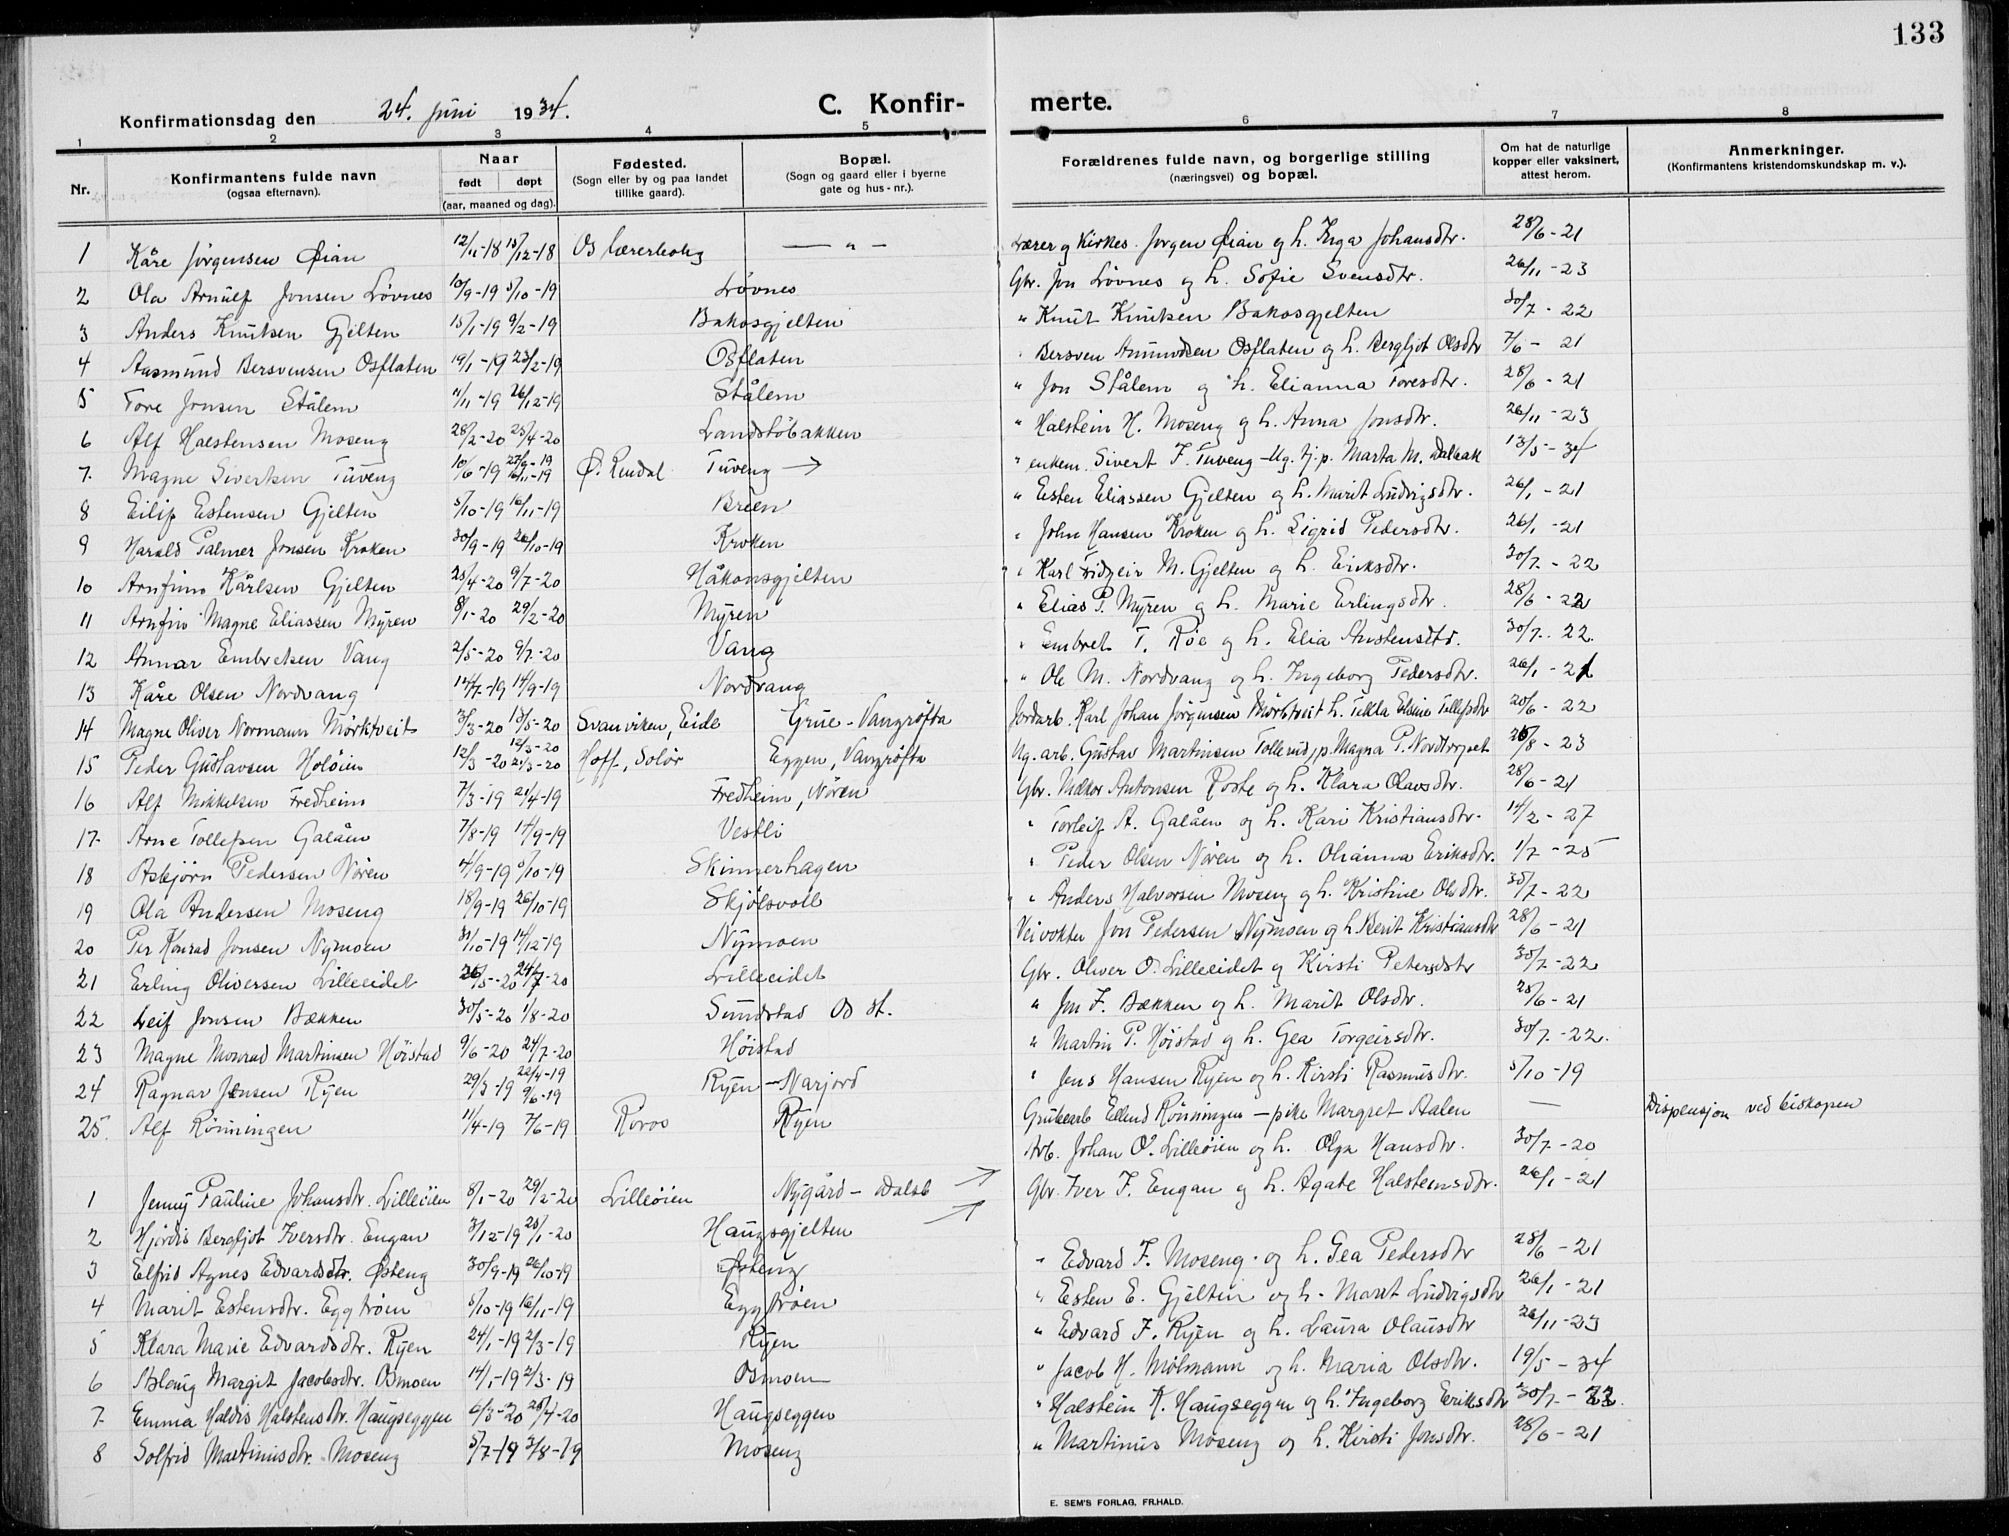 133
Konfirmationsdag den 24. juni 1934.
C. Konfir- merte.
1 2 3 4 5 6 7 8
Nr. Konfirmantens fulde navn (ogsaa efternavn). Naar født døpt (aar, maaned og dag). Fødested. (Sogn eller by og paa landet tillike gaard). Bopæl. (Sogn og gaard eller i byerne gate og hus-nr.). Forældrenes fulde navn, og borgerlige stilling (næringsvei) og bopæl. Om hat de naturlige kopper eller vaksinert, attest herom. Anmerkninger. (Konfirmantens kristendomskundskap m. v.).
1 Kåre Jørgensen Øian 12/11-18 15/12-18 Os Lærerbolig — " — Lærer og Kirkes. Jørgen Øian og h. Inga Johansdtr. 28/6-21
2 Ola Arnulf Jonsen Løvnes 10/9-19 5/10-19 Løvnes Gbr. Jon Løvnes og h. Sofie Svensdtr. 26/11-23
3 Anders Knutsen Gjelten 15/1-19 9/2-19 Bakosgjelten " Knut Knutsen Bakosgjelten 30/7-22
4 Aasmund Bersvensen Osflaten 19/1-19 23/2-19 Osflaten " Bersven Amundsen Osflaten og h. Bergljot Olsdtr 7/6-21
5 Tore Jonsen Stålem 11/11-19 26/12-19 Stålem " Jon Stålem og h. Elianna Toresdtr. 28/6-21
6 Alf Halstensen Moseng 28/2-20 25/4-20 Landstøbakken " Halstein H. Moseng og h. Anna Jonsdtr. 26/11-23
7. Magne Sivertsen Tuveng 10/6-19 27/9-19 16/11-19 Ø. Rendal Tuveng → " enkem. Sivert F. Tuveng - Ug. tj. p. Marta M. Dalbak 13/5-34
8 Eilif Estensen Gjelten 5/10-19 16/11-19 Breen " Esten Eliassen Gjelten og h. Marit Ludvigsdtr. 26/1-21
9 Harald Palmer Jonsen Kroken 30/9-19 26/10-19 Kroken " John Hansen Kroken og h. Sigrid Pedersdtr. 26/1-21
10 Arnfinn Kårlsen Gjelten 25/4-20 9/7-20 Håkonsgjelten " Karl Fidgeir M. Gjelten og h. Eriksdtr. 30/7-22
11 Arnfin Magne Eliassen Myren 8/1-20 29/2-20 Myren " Elias P. Myren og h. Marie Erlingsdtr. 28/6-22
12 Annar Embretsen Vang 2/5-20 9/7-20 Vang " Embret T. Røe og h. Elia Anstensdtr. 30/7-22.
13 Kåre Olsen Nordvang 12/7-19 14/9-19 Nordvang " Ole M. Nordvang og h. Ingeborg Pedersdtr. 26/1-21
14 Magne Oliver Normann Mørktveit 3/3-20 13/5-20 Svanviken, Eide Grue - Vangrøfta Jordarb. Karl Johan Jørgensen Mørktveit h. Tekla Elsine Tollefsdtr 20/6-22
15 Peder Gustavsen Holøien 12/3-20 12/3-20 21/3-20 Hoff, Solør Eggen, Vangrøfta Ug. arb. Gustav Martinsen Tollerud, p. Magna P. Nordtorpet 26/8-23
16 Alf Mikkelsen Fredheim 7/3-19 21/4-19 Fredheim, Nøren Gbr. Mikkor Antonsen Roste og h. Klara Olavsdtr. 28/6-21
17. Arne Tollefsen Galåen 7/8-19 14/9-19 Vestli " Torleif A. Galåen og h. Kari Kristiansdtr. 14/2-27
18 Asbjørn Pedersen Nøren 4/9-19 5/10-19 Skinnerhagen " Peder Olsen Nøren og h. Olianna Eriksdtr. 1/7-25
19 Ola Andersen Moseng 18/9-19 26/10-19 Skjølsvoll " Anders Halvorsen Moseng og h. Kristine Olsdtr. 30/7-22
20 Per Konrad Jonsen Nymoen 31/10-19 14/12-19 Nymoen Veivokter Jon Pedersen Nymoen og h. Berit Kristiansdtr 28/6-21
21 Erling Oliversen Lilleeidet 26/5-20 24/7-20 Lilleeidet Gbr. Oliver O. Lilleeidet og Kirsti Petersdtr 30/7-22
22 Leif Jonsen Bækken 30/5-20 1/8-20 Sundstad Os st. " Jon F. Bækken og h. Marit Olsdtr. 28/6-21
23 Magne Monrad Martinsen Høistad 9/6-20 24/7-20 Høistad " Martin P. Høistad og h. Gea Torgeirsdtr. 30/7-22.
24 Ragnar Jensen Ryen 29/3-19 22/4-19 9/6-19 Ryen - Narjord " Jens Hansen Ryen og h. Kirsti Rasmusdtr. 5/10-19
25. Alf Rønningen 11/4-19 7/6-19 Røros Ryen Grubearb Ellend Rønningen - pike Margret Aalen — Dispensjon ved biskopen
1 Jenny Pauline Johansdtr. Lilleøien 8/1-20 29/2-20 Lilleøien Nygård - Dalsb → Arb. Johan O. Lilleøien og h. Olga Hansdtr. 30/7-20
2 Hjørdis Bergljot Iversdtr. Engan 3/12-19 25/1-20 Haugsgjelten → Gbr. Iver F. Engan og h. Agate Halsteinsdtr. 26/1-21
3 Elfrid Agnes Edvardsdtr. Østeng 30/9-19 26/10-19 Østeng " Edvard F. Moseng og h. Gea Pedersdtr 28/6-21
4 Marit Estensdtr. Eggtrøen 5/10-19 16/11-19 Eggtrøen " Esten E. Gjelten og h. Marit Ludvigsdtr 26/1-21
5 Klara Marie Edvardsdtr. Ryen 24/1-19 2/3-19 Ryen " Edvard F. Ryen og h. Laura Olausdtr 26/11-23
6 Aslaug Margit Jacobsdtr. Osmoen 14/1-19 2/3-19 Osmoen " Jacob H. Mølmann og h. Maria Olsdtr. 19/5-34
7. Emma Haldis Halstensdtr. Haugseggen 6/3-20 25/4-20 Haugseggen " Halstein K. Haugseggen og h. Ingeborg Eriksdtr 30/7-22.
8 Solfrid Martinusdtr. Moseng 5/7-19 3/8-19 Moseng " Martinus Moseng og h. Kirsti Jonsdtr. 28/6-21
E. SEM'S FORLAG, FR.HALD.